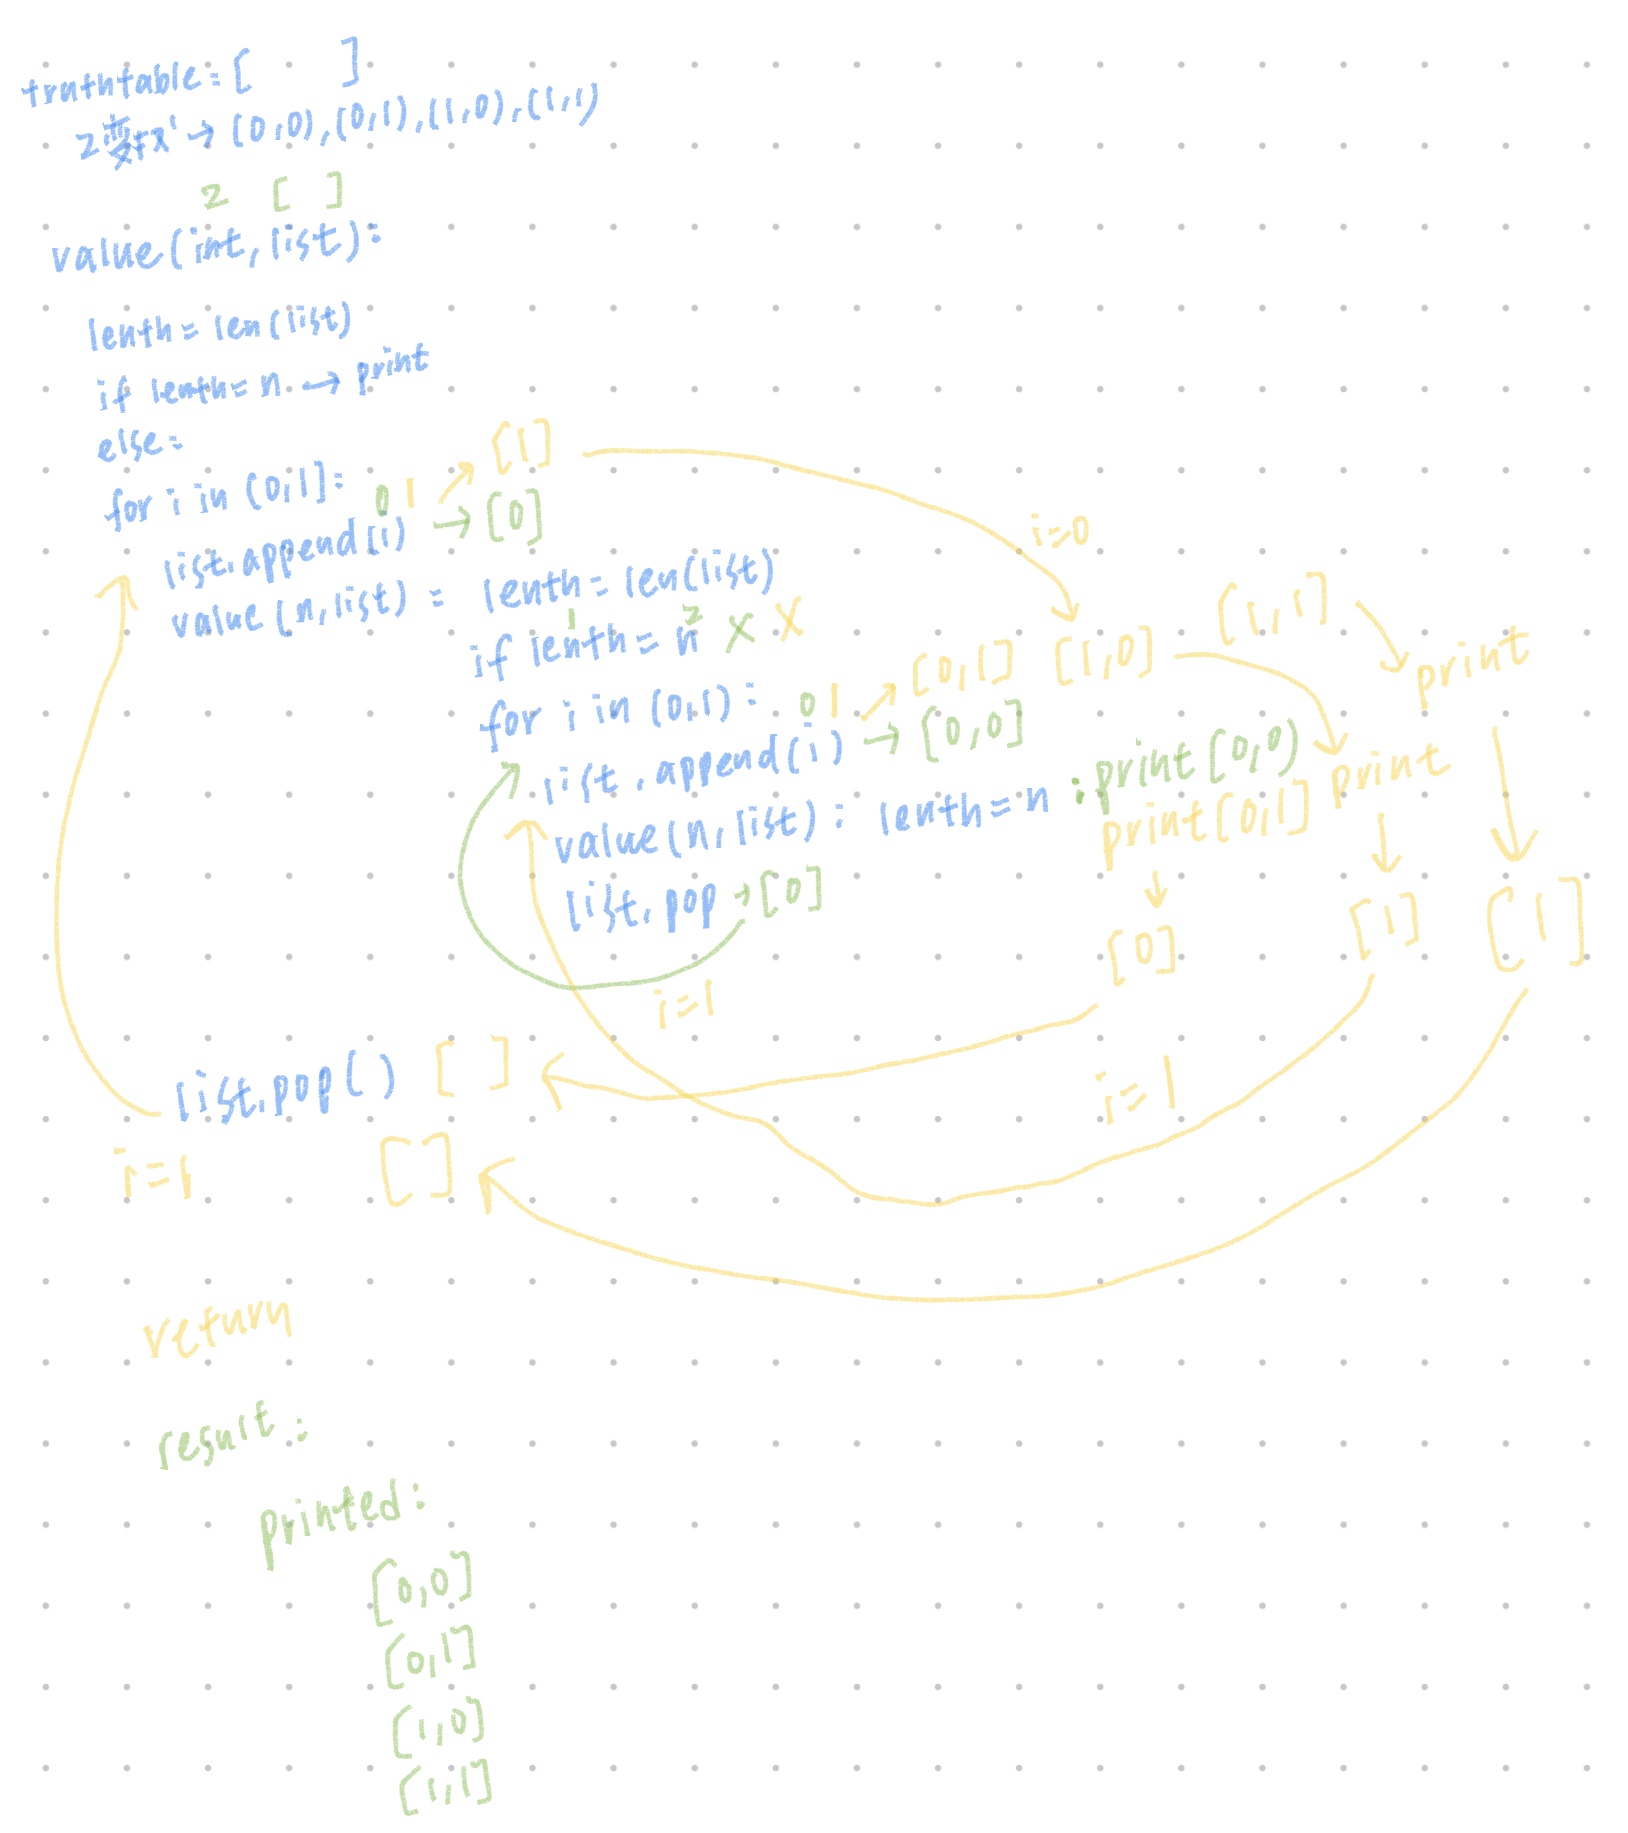 truthtable=[ ]
2変数→(0,0),(0,1),(1,0),(1,1)
2 [ ]
value(int,list):
lenth=len(list)
if lenth=n → print
else:
for i in (0,1]: 0 1 → [1]
list.append(i) → [0]
i=0
value(n,list): lenth=len(list)
if lenth=n 1 2 x x
for i in (0,1): 0 1 → [0,1] [1,0] [1,1] print
list.append(i) → [0,0]
value(n,list): lenth=n :print[0,0) print
print[0,1]
list.pop→[0]
[0] [1] [1]
i=1
list.pop() [ ]
i=1
i=1 [ ]
return
result:
printed:
[0,0]
[0,1]
[1,0]
[1,1]